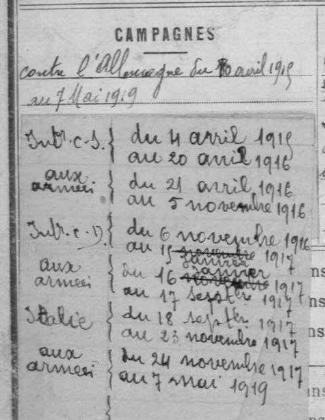 CAMPAGNES
contre l'Allemagne du 10 avril 1915
au 7 Mai 1919
Intr. c. S. { du 4 avril 1915
au 20 avril 1916
aux armées { du 21 avril 1916
au 5 novembre 1916
Intr. c. D. { du 6 novembre 1916
au 15 novembre 1917
janvier
aux armées { du 16 novembre 1917
janvier
au 17 septbr 1917
Italie { du 18 septbr 1917
au 23 novembre 1917
aux armées { du 24 novembre 1917
au 7 mai 1919
ns